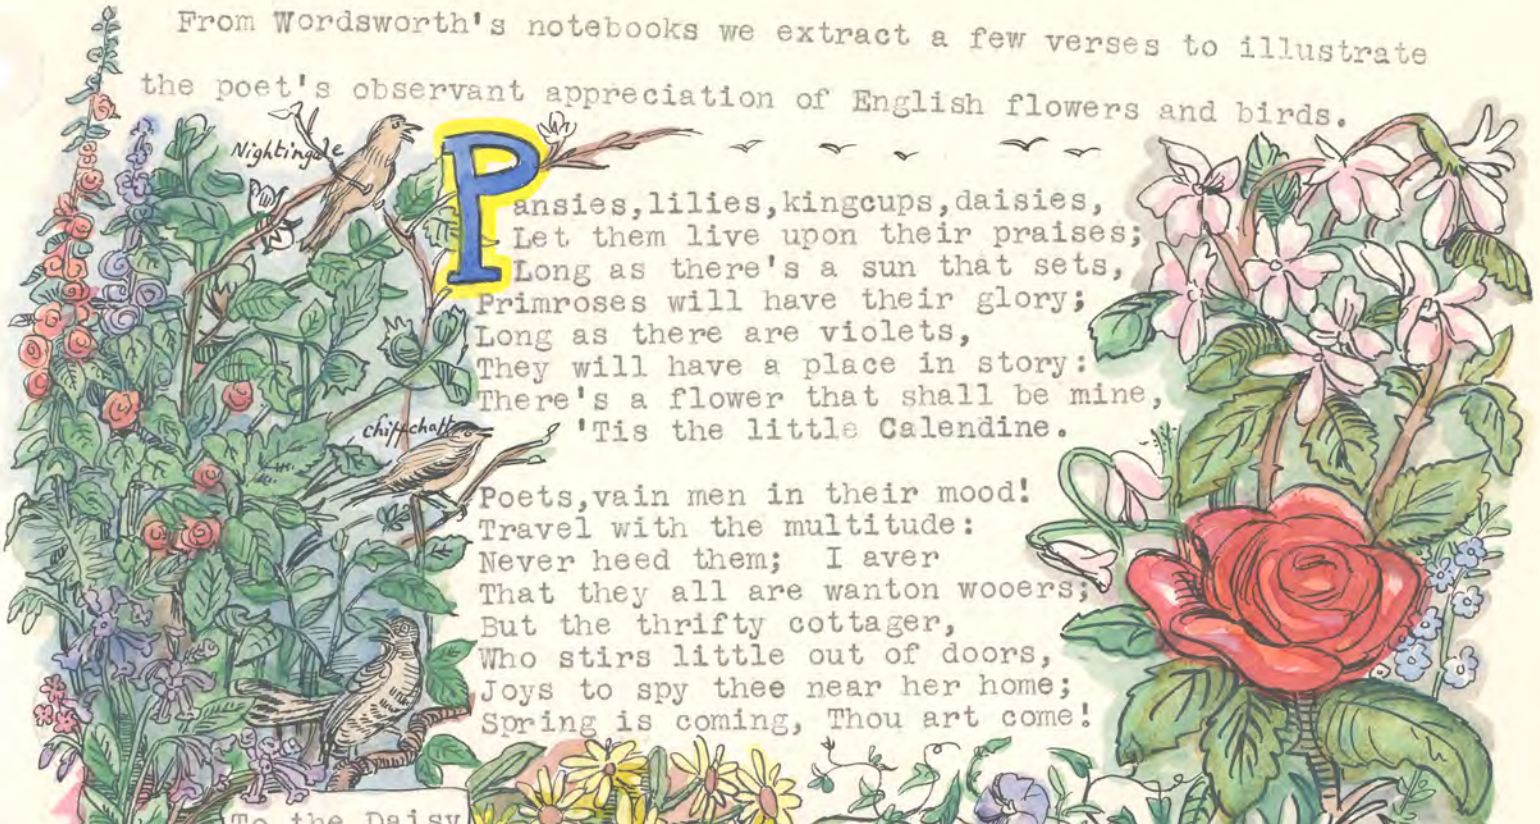 From Wordsworth's notebooks we extract a few verses to illustrate
the poet's observant appreciation of English flowers and birds.
Nightingale
Pansies,lilies,kingcups,daisies,
Let them live upon their praises;
Long as there's a sun that sets,
Primroses will have their glory;
Long as there are violets,
They will have a place in story:
There's a flower that shall be mine,
'Tis the little Calendine.
chiffchaff
Poets,vain men in their mood!
Travel with the multitude:
Never heed them; I aver
That they all are wanton wooers;
But the thrifty cottager,
Who stirs little out of doors,
Joys to spy thee near her home;
Spring is coming, Thou art come!
To the Daisy